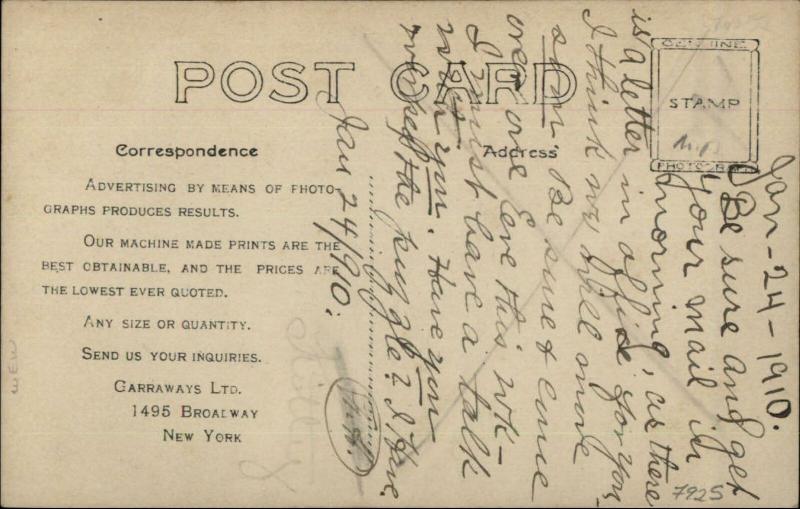 POST CARD
Correspondence
Address
GENUINE
STAMP
PHOTOGRAPH
ADVERTISING BY MEANS OF PHOTO-
GRAPHS PRODUCES RESULTS.
OUR MACHINE MADE PRINTS ARE THE
BEST OBTAINABLE, AND THE PRICES ARE
THE LOWEST EVER QUOTED.
ANY SIZE OR QUANTITY.
SEND US YOUR INQUIRIES.
GARRAWAYS LTD.
1495 BROADWAY
NEW YORK
Jan-24-1910.
Be sure and get
your mail in
morning, as there
is a letter in office for you
I think we will move
soon Be sure & come
over one Eve this wk-
I must have a talk
with you. Have you
the puzzle? I have.
Jan 24/1910:
7925
WEW